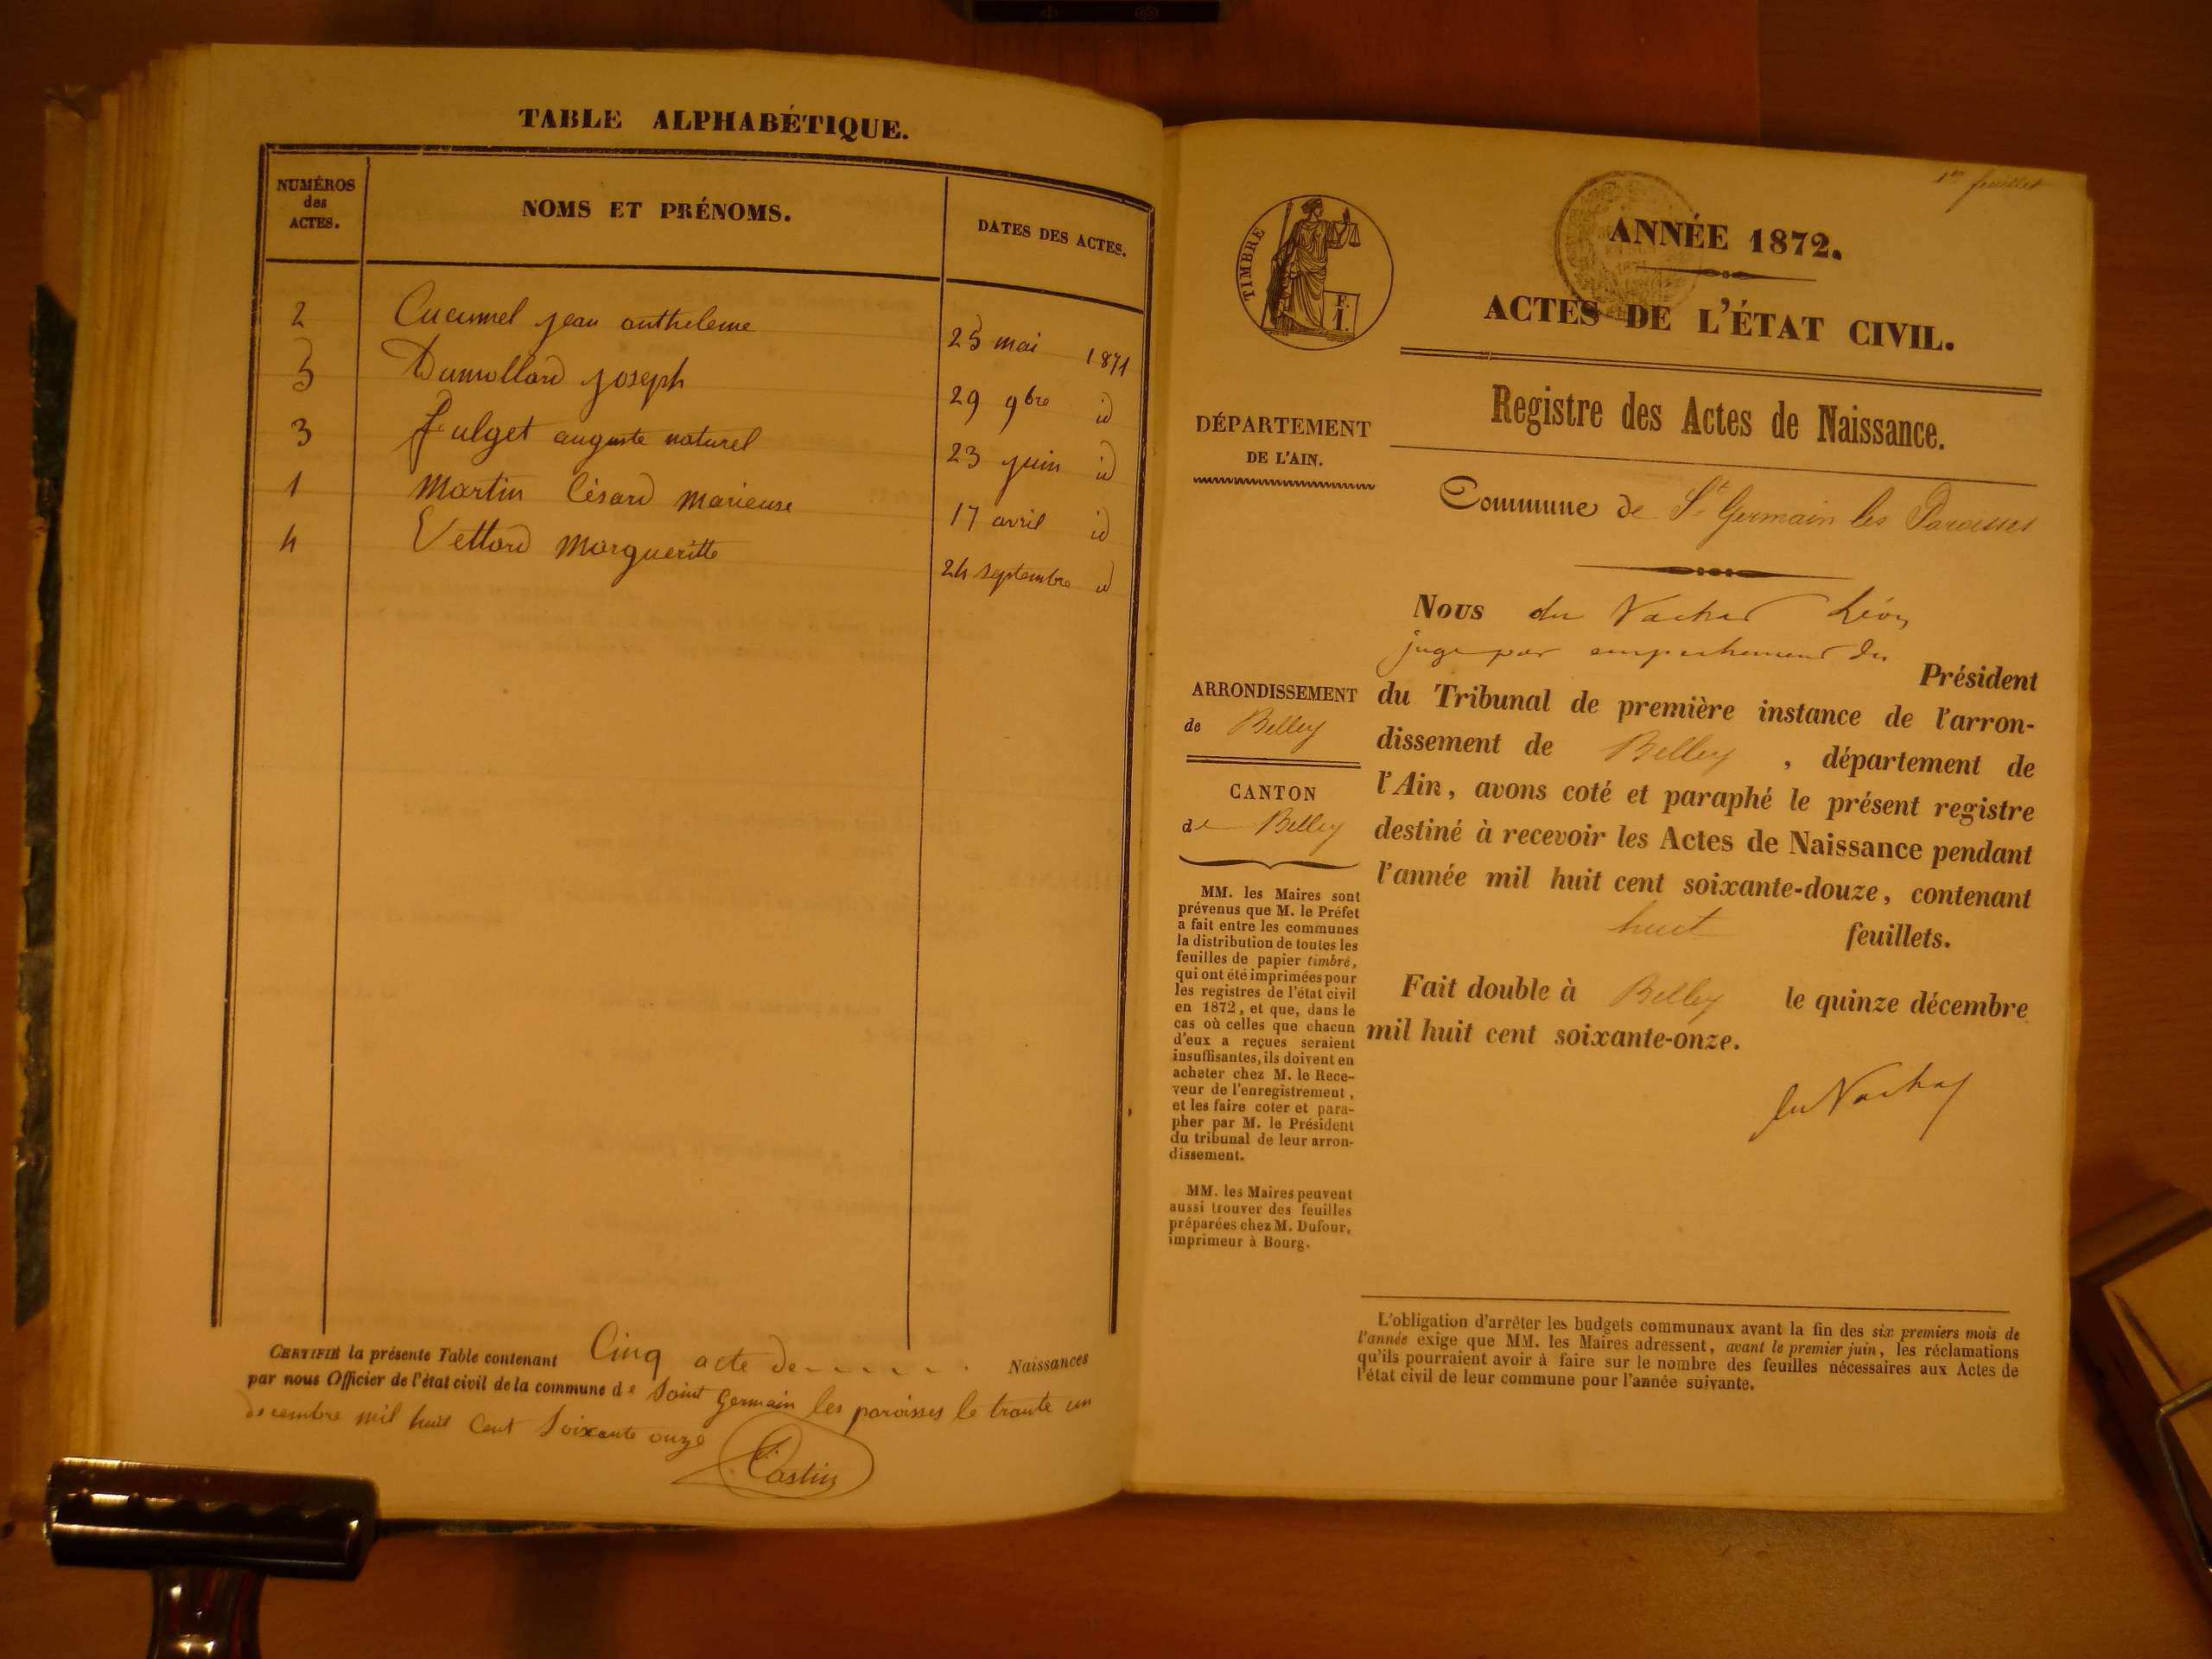 TABLE ALPHABÉTIQUE.
NUMÉROS
des
ACTES.
NOMS ET PRÉNOMS.
DATES DES ACTES.
2 Cucumel jean antheleme 25 mai 1871
5 Dumollard joseph 29 9bre id
3 Fulget auguste naturel 23 juin id
1 Martin Césard marieuse 17 avril id
4 Vettard Margueritte 24 septembre id
CERTIFIÉ la présente Table contenant Cinq acte de Naissances
par nous Officier de l'état civil de la commune de Saint Germain les paroisses le trante un
decembre mil huit Cent Soixante onze
Castin
1er feuillet
TIMBRE
F.
I.
ANNÉE 1872.
ACTES DE L'ÉTAT CIVIL.
Registre des Actes de Naissance.
DÉPARTEMENT
DE L'AIN.
Commune de St Germain les Paroisses
Nous du Vachat Léon
juge par empechement du Président
du Tribunal de première instance de l'arron-
dissement de Belley, département de
l'Ain, avons coté et paraphé le présent registre
destiné à recevoir les Actes de Naissance pendant
l'année mil huit cent soixante-douze, contenant
huit feuillets.
Fait double à Belley le quinze décembre
mil huit cent soixante-onze.
du Vachat
ARRONDISSEMENT
de Belley
CANTON
de Belley
MM. les Maires sont
prévenus que M. le Préfet
a fait entre les communes
la distribution de toutes les
feuilles de papier timbré,
qui ont été imprimées pour
les registres de l'état civil
en 1872, et que, dans le
cas où celles que chacun
d'eux a reçues seraient
insuffisantes, ils doivent en
acheter chez M. le Rece-
veur de l'enregistrement,
et les faire coter et para-
pher par M. le Président
du tribunal de leur arron-
dissement.
MM. les Maires peuvent
aussi trouver des feuilles
préparées chez M. Dufour,
imprimeur à Bourg.
L'obligation d'arrêter les budgets communaux avant la fin des six premiers mois de
l'année exige que MM. les Maires adressent, avant le premier juin, les réclamations
qu'ils pourraient avoir à faire sur le nombre des feuilles nécessaires aux Actes de
l'état civil de leur commune pour l'année suivante.